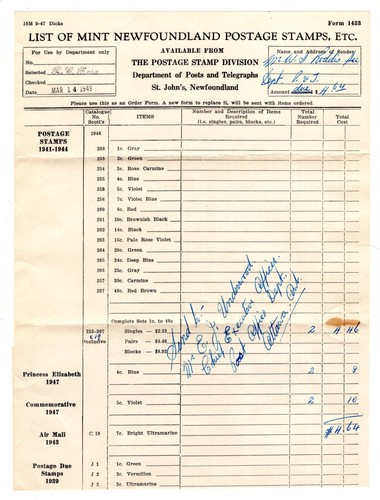 10M 9-47 Dicks
Form 1433
LIST OF MINT NEWFOUNDLAND POSTAGE STAMPS, ETC.
For Use by Department only
No.
Selected
Checked
Date MAR 14 1949
AVAILABLE FROM
THE POSTAGE STAMP DIVISION
Department of Posts and Telegraphs
St. John's, Newfoundland
Name and Address of Sender
Mr W. J.
Dept. P. & T.
Amount 4.64
Please use this as an Order Form. A new form to replace it, will be sent with items ordered.
Catalogue No. Scott's
ITEMS
Number and Description of Items Required (i.e. singles, pairs, blocks, etc.)
Total Number Required
Total Cost
POSTAGE STAMPS 1941-1944
1946
253 1c. Gray
254 2c. Green
255 3c. Rose Carmine
256 4c. Blue
257 5c. Violet
258 7c. Violet Blue
259 8c. Red
260 10c. Brownish Black
261 14c. Black
262 15c. Pale Rose Violet
263 20c. Green
264 24c. Deep Blue
265 25c. Gray
266 30c. Carmine
267 48c. Red Brown
Complete Sets 1c. to 48c
253-267 Inclusive
Singles — $2.23 2 4 46
Pairs — $4.46
Blocks — $8.92
Send to:
Mr E. J. Underwood
Chief Executive Officer
Post Office Dept.
Ottawa, Ont.
Princess Elizabeth 1947
4c. Blue 2 8
Commemorative 1947
5c. Violet 2 10
$4.64
Air Mail 1943
C 19 7c. Bright Ultramarine
Postage Due Stamps 1939
J 1 1c. Green
J 2 2c. Vermilion
J 3 3c. Ultramarine